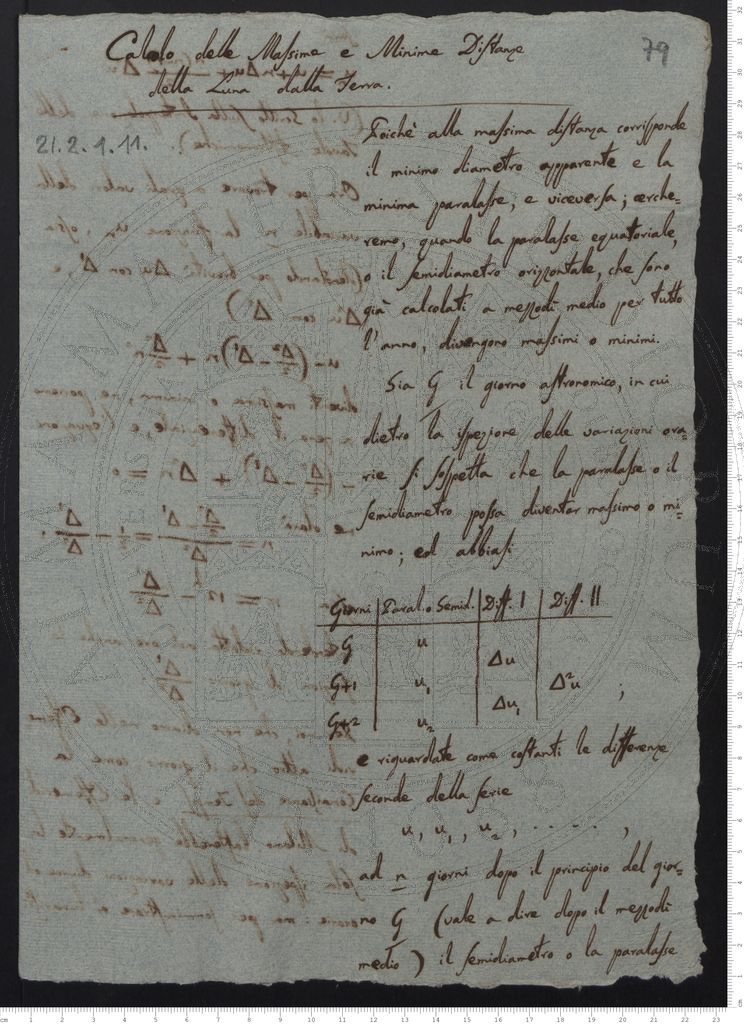 Calcolo delle Massime e Minime Distanze
della Luna dalla Terra.
79
21.2.1.11.
Poichè alla massima distanza corrisponde
il minimo diametro apparente e la
minima paralasse, e viceversa; cerche=
remo, quando la paralasse equatoriale,
o il semidiametro orizzontale, che sono
già calcolati a mezzodì medio per tutto
l'anno, divengono massimi o minimi.
Sia G il giorno astronomico, in cui
dietro la ispezione delle variazioni ora=
rie si sospetta che la paralasse o il
semidiametro possa diventar massimo o mi=
nimo; ed abbiasi
Giorni | Paral. o Semid. | Diff. I | Diff. II
G u
Δu
G+1 u₁ Δ²u ;
Δu₁
G+2 u₂
e riguardate come costanti le differenze
seconde della serie
u, u₁, u₂, ..... ,
ad n giorni dopo il principio del gior=
no G (vale a dire dopo il mezzodì
medio) il semidiametro o la paralasse